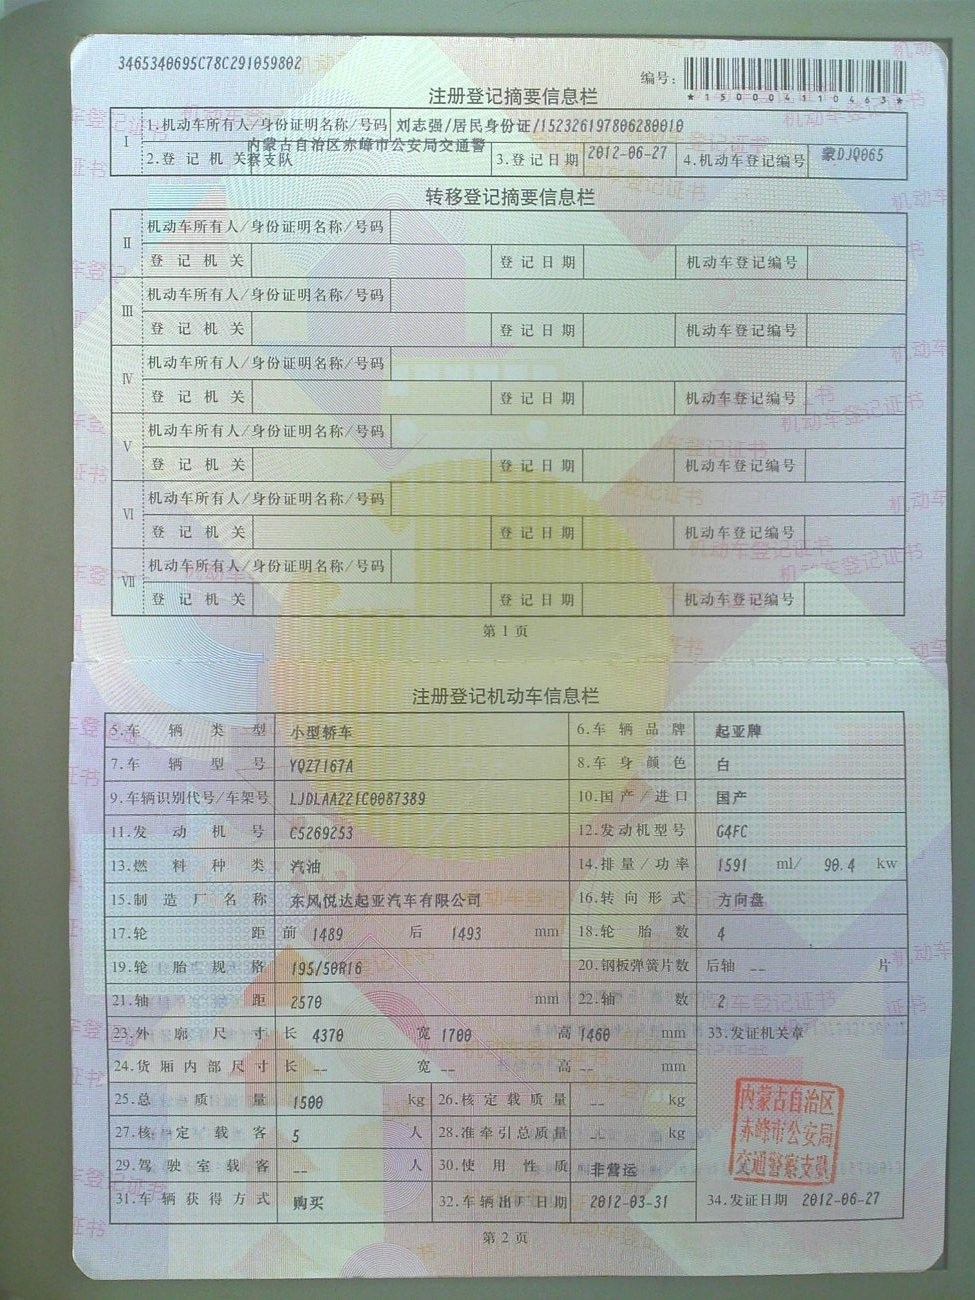 3465340695C78C291059802
编号:
*150004110463*
注册登记摘要信息栏
Ⅰ 1.机动车所有人/身份证明名称/号码 刘志强/居民身份证/152326197806280010
2.登记机关 内蒙古自治区赤峰市公安局交通警察支队 3.登记日期 2012-06-27 4.机动车登记编号 蒙DJQ065
转移登记摘要信息栏
Ⅱ 机动车所有人/身份证明名称/号码
登记机关 登记日期 机动车登记编号
Ⅲ 机动车所有人/身份证明名称/号码
登记机关 登记日期 机动车登记编号
Ⅳ 机动车所有人/身份证明名称/号码
登记机关 登记日期 机动车登记编号
Ⅴ 机动车所有人/身份证明名称/号码
登记机关 登记日期 机动车登记编号
Ⅵ 机动车所有人/身份证明名称/号码
登记机关 登记日期 机动车登记编号
Ⅶ 机动车所有人/身份证明名称/号码
登记机关 登记日期 机动车登记编号
第1页
注册登记机动车信息栏
5.车辆类型 小型轿车 6.车辆品牌 起亚牌
7.车辆型号 YQZ7167A 8.车身颜色 白
9.车辆识别代号/车架号 LJDLAA221C0087389 10.国产/进口 国产
11.发动机号 C5269253 12.发动机型号 G4FC
13.燃料种类 汽油 14.排量/功率 1591 ml/ 90.4 kw
15.制造厂名称 东风悦达起亚汽车有限公司 16.转向形式 方向盘
17.轮距 前 1489 后 1493 mm 18.轮胎数 4
19.轮胎规格 195/50R16 20.钢板弹簧片数 后轴 -- 片
21.轴距 2570 mm 22.轴数 2
23.外廓尺寸 长 4370 宽 1700 高 1460 mm 33.发证机关章
24.货厢内部尺寸 长 -- 宽 -- 高 -- mm
25.总质量 1500 kg 26.核定载质量 -- kg
27.核定载客 5 人 28.准牵引总质量 -- kg
29.驾驶室载客 -- 人 30.使用性质 非营运
内蒙古自治区
赤峰市公安局
交通警察支队
31.车辆获得方式 购买 32.车辆出厂日期 2012-03-31 34.发证日期 2012-06-27
第2页